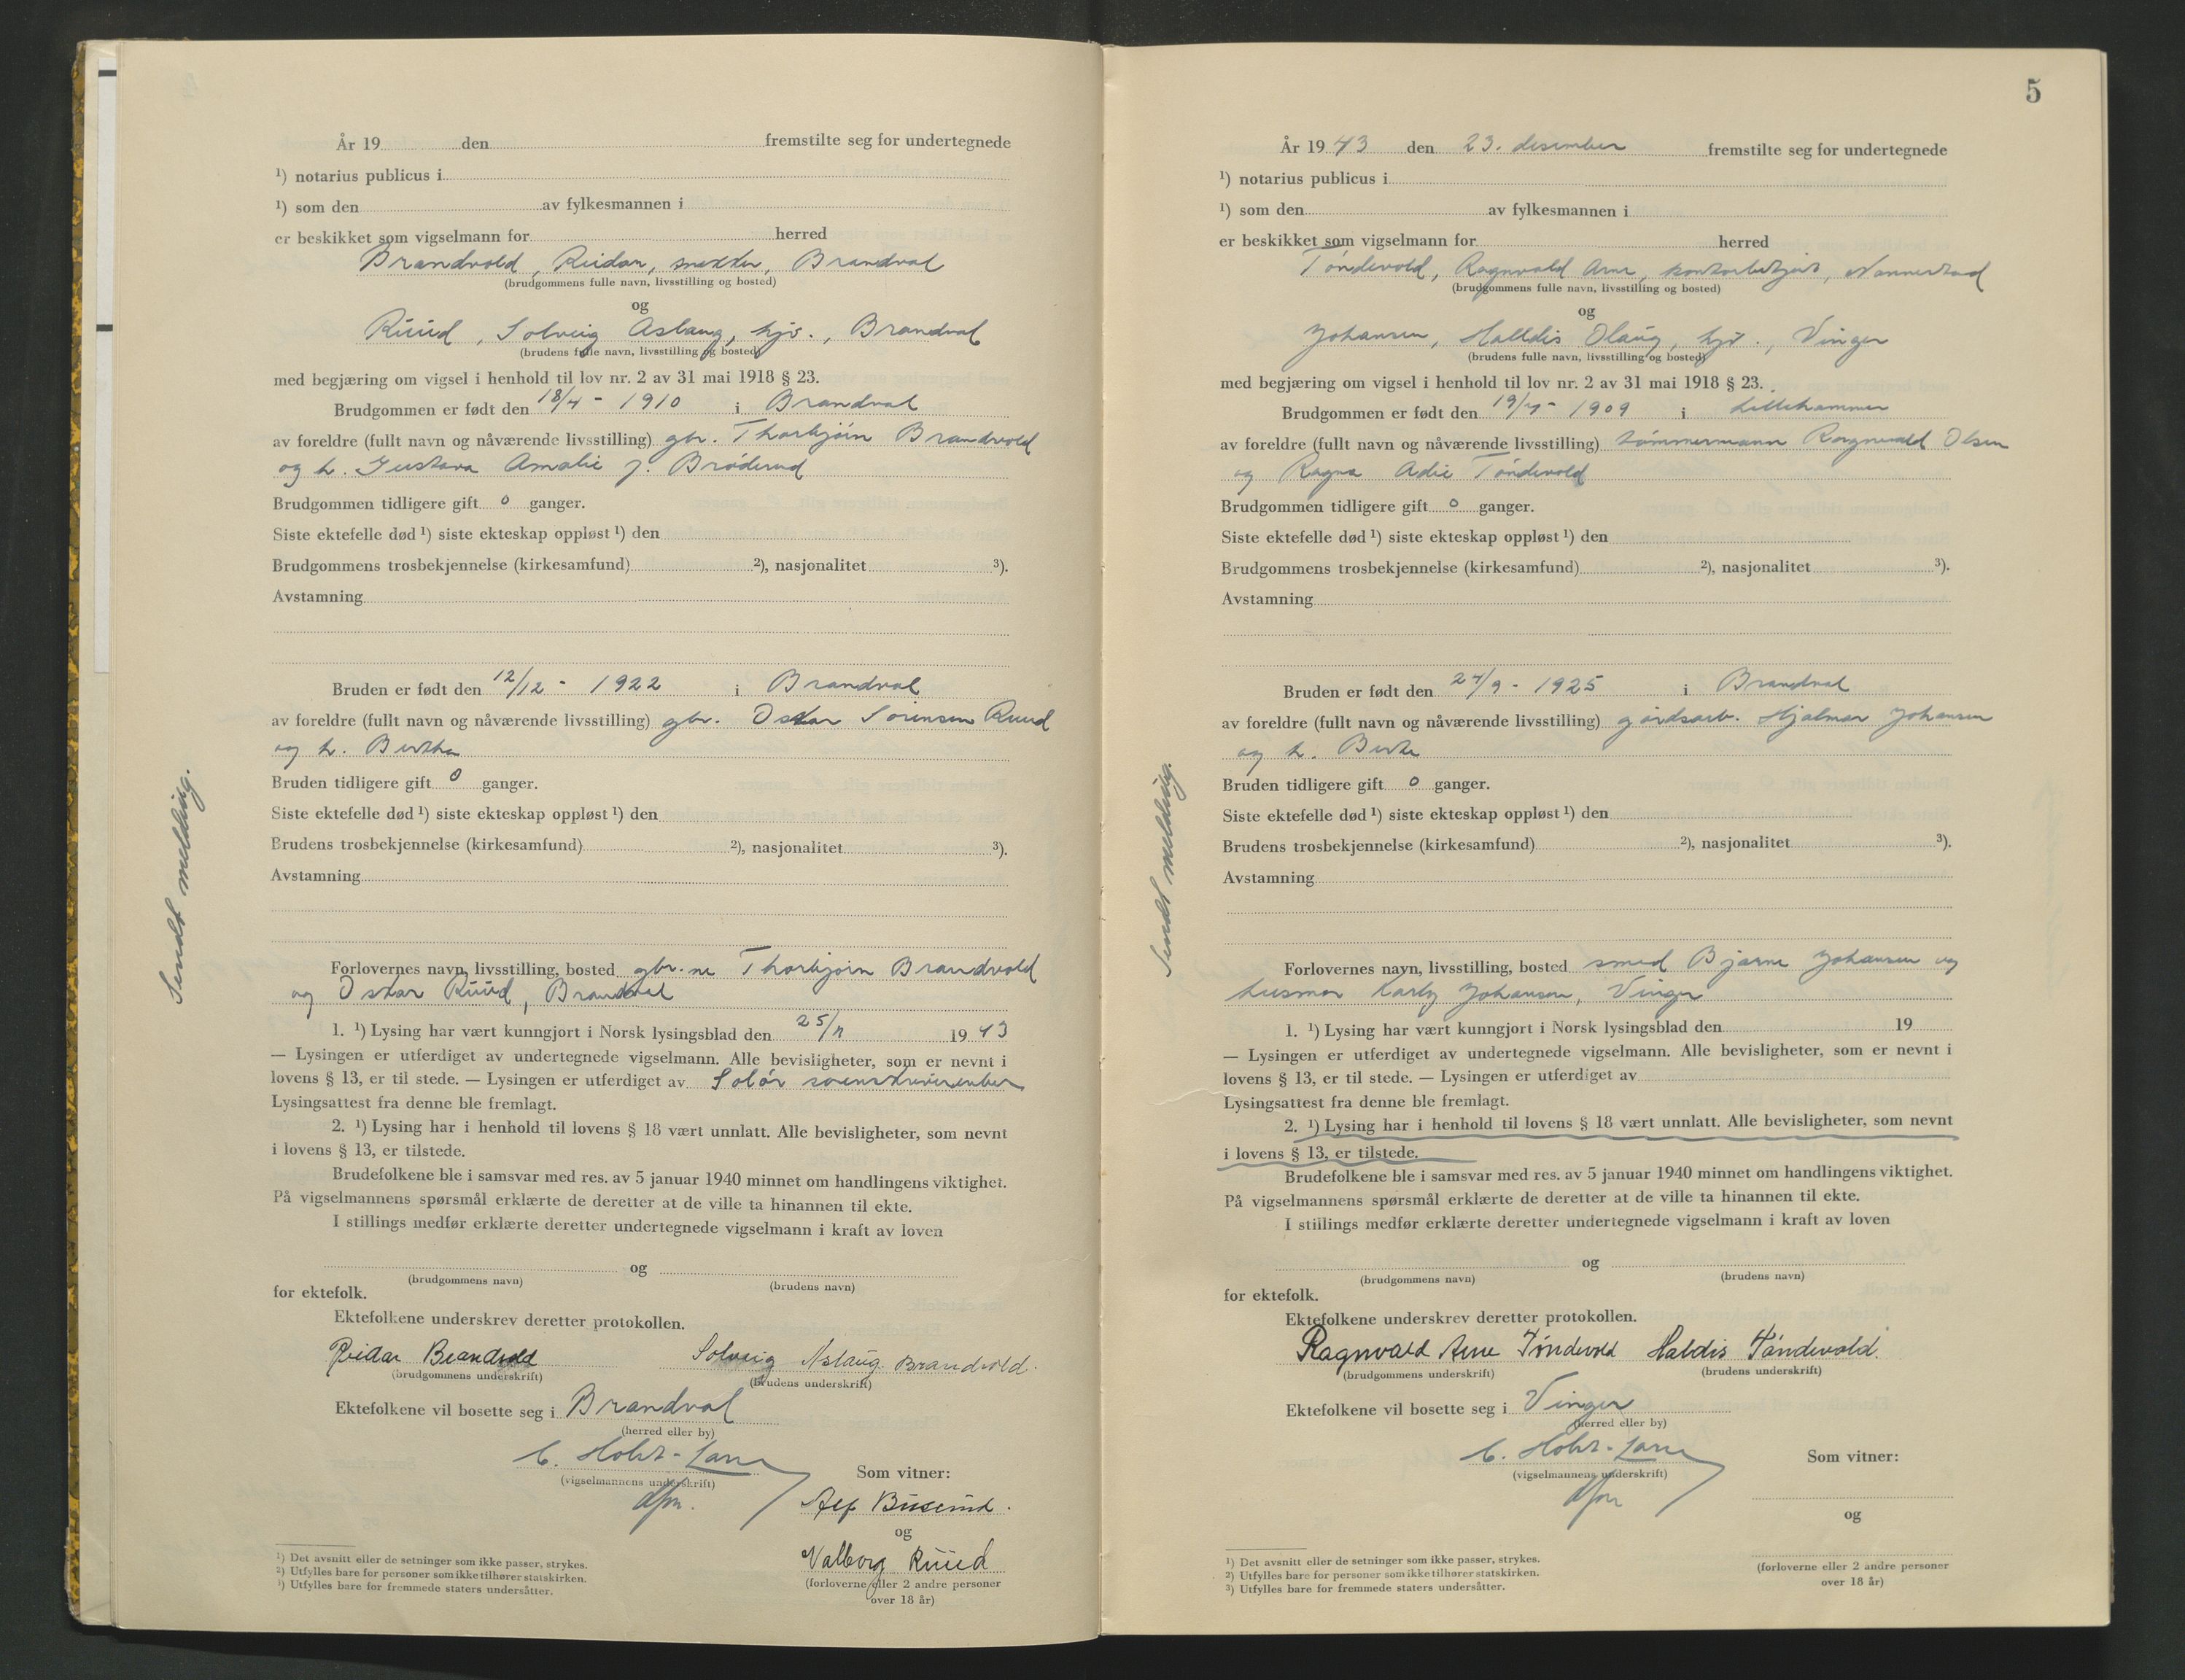 År 19 den fremstilte seg for undertegnede
¹) notarius publicus i
¹) som den av fylkesmannen i
er beskikket som vigselmann for herred
Brandvold, Reidar, snekker, Brandval
(brudgommens fulle navn, livsstilling og bosted)
og
Ruud, Solveig Aslaug, hjv., Brandval
(brudens fulle navn, livsstilling og bosted)
med begjæring om vigsel i henhold til lov nr. 2 av 31 mai 1918 § 23.
Brudgommen er født den 18/4 - 1910 i Brandval
av foreldre (fullt navn og nåværende livsstilling) gbr. Thorbjørn Brandvold
og h. Gustava Amalie f. Brøderud
Brudgommen tidligere gift 0 ganger.
Siste ektefelle død ¹) siste ekteskap oppløst ¹) den
Brudgommens trosbekjennelse (kirkesamfund) ²), nasjonalitet ³).
Avstamning
Bruden er født den 12/12 - 1922 i Brandval
av foreldre (fullt navn og nåværende livsstilling) gbr. Oskar Sørensen Ruud
og h. Bertha
Bruden tidligere gift 0 ganger.
Siste ektefelle død ¹) siste ekteskap oppløst ¹) den
Brudens trosbekjennelse (kirkesamfund) ²), nasjonalitet ³).
Avstamning
Sendt melding.
Forlovernes navn, livsstilling, bosted gbr.ne Thorbjørn Brandvold
og Oskar Ruud, Brandval
1. ¹) Lysing har vært kunngjort i Norsk lysingsblad den 25/11 1943
— Lysingen er utferdiget av undertegnede vigselmann. Alle bevisligheter, som er nevnt i
lovens § 13, er til stede. — Lysingen er utferdiget av Solør sorenskriverembet
Lysingsattest fra denne ble fremlagt.
2. ¹) Lysing har i henhold til lovens § 18 vært unnlatt. Alle bevisligheter, som nevnt
i lovens § 13, er tilstede.
Brudefolkene ble i samsvar med res. av 5 januar 1940 minnet om handlingens viktighet.
På vigselmannens spørsmål erklærte de deretter at de ville ta hinannen til ekte.
I stillings medfør erklærte deretter undertegnede vigselmann i kraft av loven
og
(brudgommens navn) (brudens navn)
for ektefolk.
Ektefolkene underskrev deretter protokollen.
Reidar Brandvold Solveig Aslaug Brandvold.
(brudgommens underskrift) (brudens underskrift)
Ektefolkene vil bosette seg i Brandval
(herred eller by)
C. Holst-Larsen
(vigselmannens underskrift)
dfm.
Som vitner:
Alf Buserud.
og
Valborg Ruud
(forloverne eller 2 andre personer
over 18 år)
¹) Det avsnitt eller de setninger som ikke passer, strykes.
²) Utfylles bare for personer som ikke tilhører statskirken.
³) Utfylles bare for fremmede staters undersåtter.
5
År 1943 den 23. desember fremstilte seg for undertegnede
¹) notarius publicus i
¹) som den av fylkesmannen i
er beskikket som vigselmann for herred
Tøndevold, Ragnvald Arne, kontorbetjent, Nannestad
(brudgommens fulle navn, livsstilling og bosted)
og
Johansen, Halldis Olaug, hjv., Vinger
(brudens fulle navn, livsstilling og bosted)
med begjæring om vigsel i henhold til lov nr. 2 av 31 mai 1918 § 23.
Brudgommen er født den 1909 i Lillehammer
av foreldre (fullt navn og nåværende livsstilling) tømmermann Ragnvald Olsen
og Ragna Adie Tøndevold
Brudgommen tidligere gift 0 ganger.
Siste ektefelle død ¹) siste ekteskap oppløst ¹) den
Brudgommens trosbekjennelse (kirkesamfund) ²), nasjonalitet ³).
Avstamning
Bruden er født den 24/9 - 1925 i Brandval
av foreldre (fullt navn og nåværende livsstilling) gårdsarb. Hjalmar Johansen
og h. Berte
Bruden tidligere gift 0 ganger.
Siste ektefelle død ¹) siste ekteskap oppløst ¹) den
Brudens trosbekjennelse (kirkesamfund) ²), nasjonalitet ³).
Avstamning
Sendt melding.
Forlovernes navn, livsstilling, bosted smed Bjarne Johansen og
husmor Karly Johansen, Vinger
1. ¹) Lysing har vært kunngjort i Norsk lysingsblad den 19
— Lysingen er utferdiget av undertegnede vigselmann. Alle bevisligheter, som er nevnt i
lovens § 13, er til stede. — Lysingen er utferdiget av
Lysingsattest fra denne ble fremlagt.
2. ¹) Lysing har i henhold til lovens § 18 vært unnlatt. Alle bevisligheter, som nevnt
i lovens § 13, er tilstede.
Brudefolkene ble i samsvar med res. av 5 januar 1940 minnet om handlingens viktighet.
På vigselmannens spørsmål erklærte de deretter at de ville ta hinannen til ekte.
I stillings medfør erklærte deretter undertegnede vigselmann i kraft av loven
og
(brudgommens navn) (brudens navn)
for ektefolk.
Ektefolkene underskrev deretter protokollen.
Ragnvald Arne Tøndevold Haldis Tøndevold.
(brudgommens underskrift) (brudens underskrift)
Ektefolkene vil bosette seg i Vinger
(herred eller by)
C. Holst-Larsen
(vigselmannens underskrift)
dfm
Som vitner:
og
(forloverne eller 2 andre personer
over 18 år)
¹) Det avsnitt eller de setninger som ikke passer, strykes.
²) Utfylles bare for personer som ikke tilhører statskirken.
³) Utfylles bare for fremmede staters undersåtter.